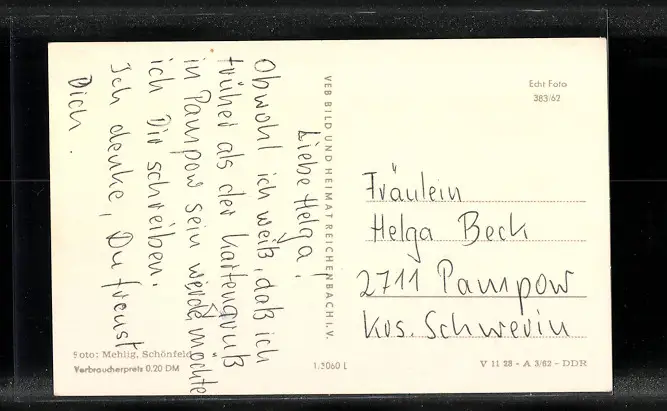 Liebe Helga!
Obwohl ich weiß, daß ich
früher als der Kartengruß
in Pampow sein werde, möchte
ich Dir schreiben.
Ich denke, Du freust
Dich.
Foto: Mehlig, Schönfeld
Verbraucherpreis 0.20 DM
VEB BILD UND HEIMAT REICHENBACH I. V.
1.3060 L
Echt Foto
383/62
Fräulein
Helga Beck
2711 Pampow
Krs. Schwerin
V 11 28 - A 3/62 - DDR